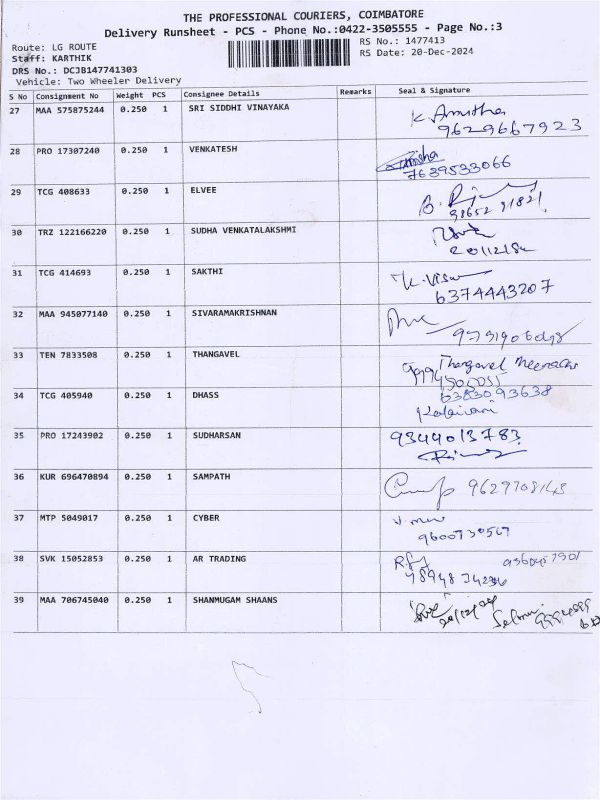 THE PROFESSIONAL COURIERS, COIMBATORE
Delivery Runsheet - PCS - Phone No.:0422-3505555 - Page No.:3
Route: LG ROUTE
RS No.: 1477413
Staff: KARTHIK
RS Date: 20-Dec-2024
DRS No.: DCJB147741303
Vehicle: Two Wheeler Delivery
S No Consignment No Weight PCS Consignee Details Remarks Seal & Signature
27 MAA 575875244 0.250 1 SRI SIDDHI VINAYAKA K. Amutha
9629667923
28 PRO 17307240 0.250 1 VENKATESH
7639533066
29 TCG 408633 0.250 1 ELVEE
98652 91821
30 TRZ 122166220 0.250 1 SUDHA VENKATALAKSHMI
31 TCG 414693 0.250 1 SAKTHI
6374443207
32 MAA 945077140 0.250 1 SIVARAMAKRISHNAN
33 TEN 7833508 0.250 1 THANGAVEL Thangavel
34 TCG 405940 0.250 1 DHASS 6383093638
35 PRO 17243902 0.250 1 SUDHARSAN 9344013783
36 KUR 696470894 0.250 1 SAMPATH
37 MTP 5049017 0.250 1 CYBER
38 SVK 15052853 0.250 1 AR TRADING
39 MAA 706745040 0.250 1 SHANMUGAM SHAANS
20/12/24